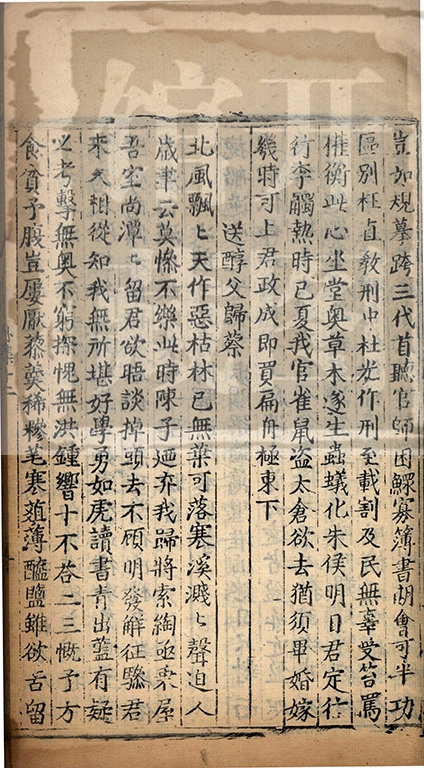 豈如規摹跨三代首聽官師困鰥寡簿書胡會可半功
區別枉直教刑中杜老作刑至載割及民無辜受笞罵
權衡此心坐堂奥草木遂生蟲蟻化朱侯明日君定徃
行李觸熱時已夏我官雀鼠盗太倉欲去猶須畢婚嫁
幾時可上君政成即買扁舟極東下
送醇父歸蔡
北風飄〻天作惡枯林已無葉可落寒溪濺〻聲迫人
歳聿云莫慘不樂此時陳子廼弃我歸將索綯亟乗屋
吾室尚潭〻留君欲晤談掉頭去不顧明發解征驂君
來久相從知我無所堪好學勇如虎讀書青出藍有疑
必考擊無奥不窮探愧無洪鍾響十不荅二三慨予方
食貧予腹豈屢厭藜羮稀糝芼寒葅薄醯鹽雖欲舌留